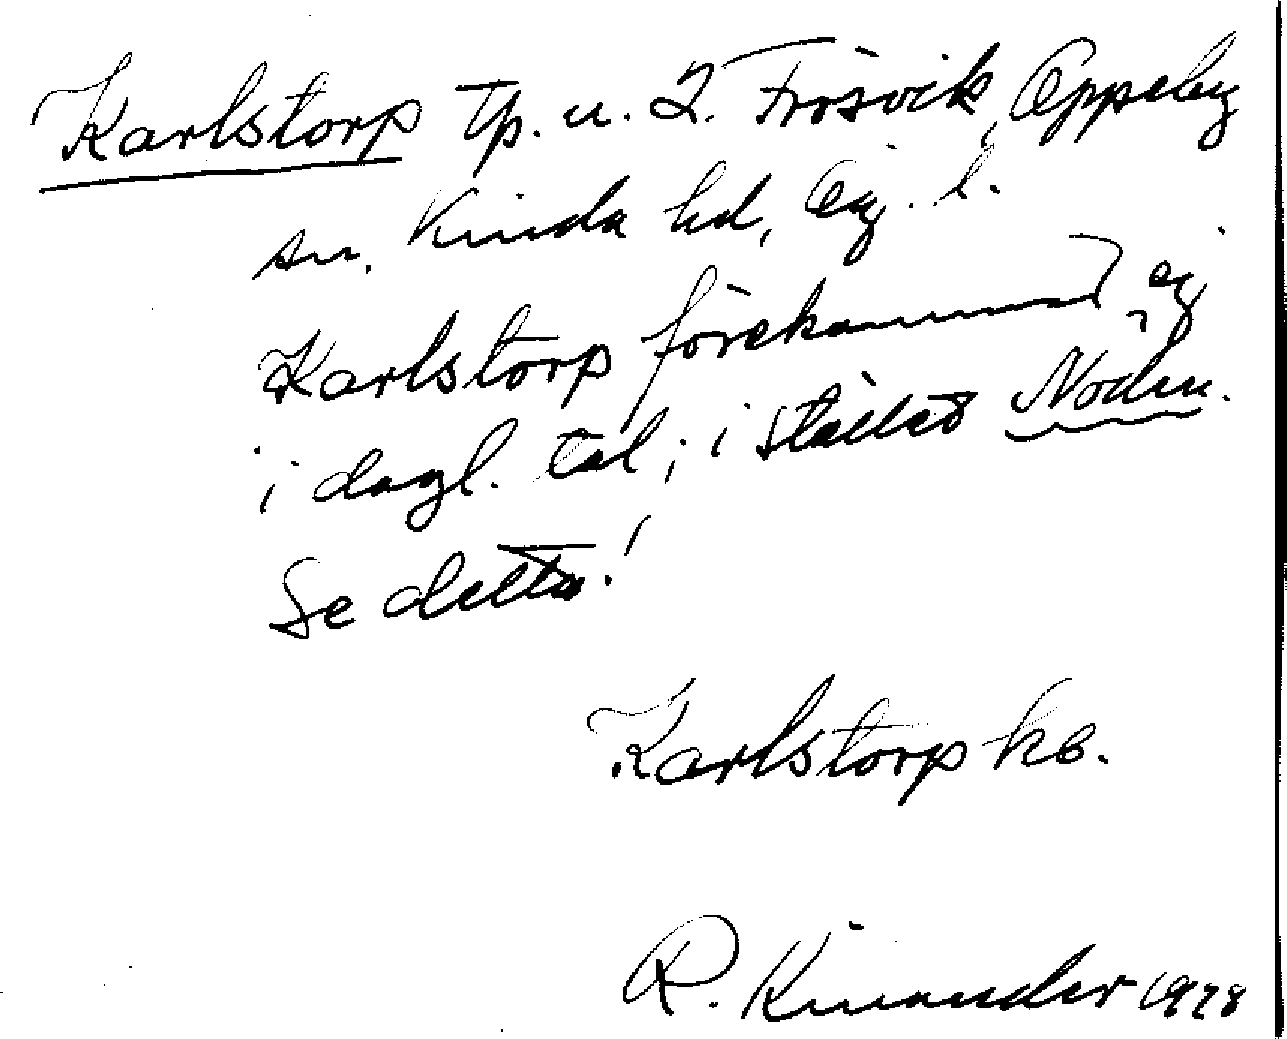 Karlstorp tp. u. 2. Frösvik, Oppeby
sn. Kinda hd, Ög. l.
Karlstorp förekommer ej
i dagl. tal; i stället Noden.
Se detta!
Karlstorp kb.
R. Kinander 1978